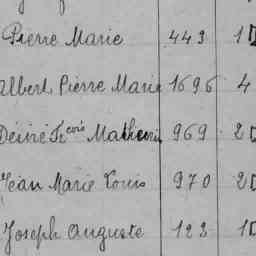 Pierre Marie 443 1
Albert Pierre Marie 1696 4
Désiré Fcois Mathurin 969 2
Jean Marie Louis 970 2
Joseph Auguste 123 1